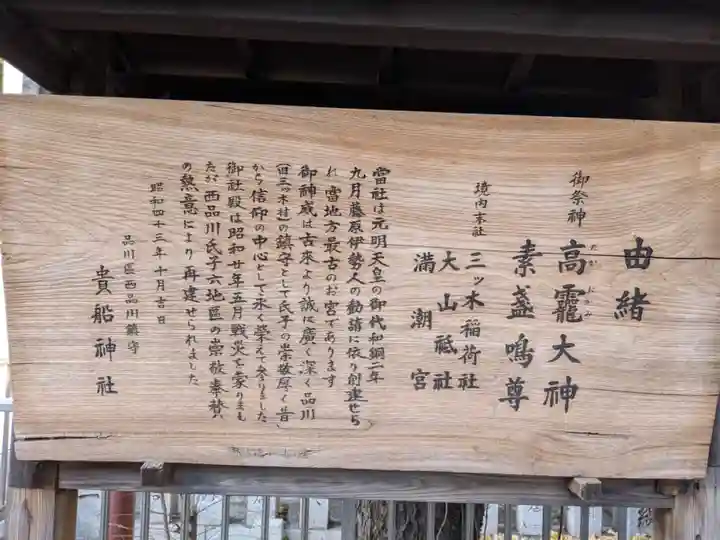 由緒
御祭神
高龗大神
たか おかみ
素盞嗚尊
境内末社
三ッ木稲荷社
大山祗社
満潮宮
當社は元明天皇の御代和銅二年
九月藤原伊勢人の勧請に依り創建せら
れ 當地方最古のお宮であります
御神威は古來より誠に廣く深く品川
(旧三ッ木村)の鎮守として氏子の崇敬厚く昔
から信仰の中心として永く榮えて参りました
御社殿は昭和廿年五月戦災を蒙りまし
たが 西品川氏子六地區の崇敬奉賛
の熱意により再建せられました
昭和四十三年十月吉日
品川區西品川鎮守
貴船神社